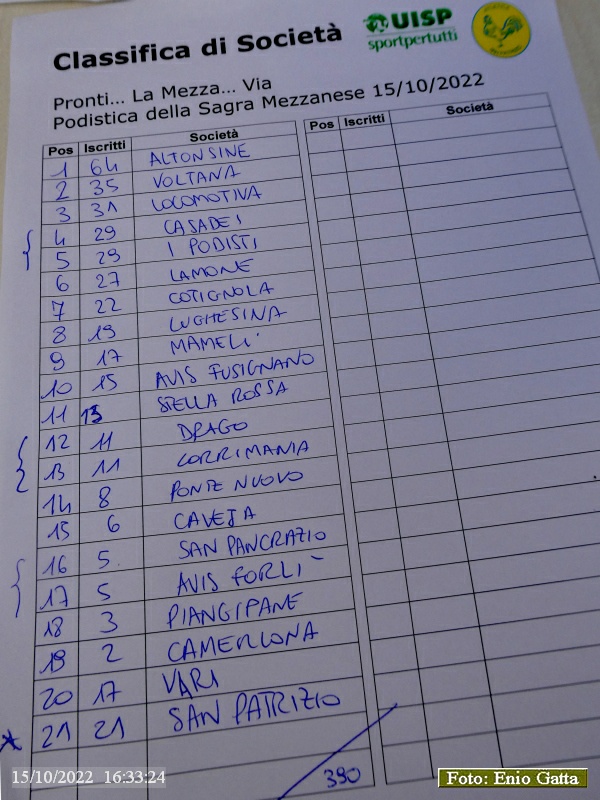 Classifica di Società
UISP
sportpertutti
Pronti... La Mezza... Via
Podistica della Sagra Mezzanese 15/10/2022
Pos Iscritti Società Pos Iscritti Società
1 64 ALTONSINE
2 35 VOLTANA
3 31 LOCOMOTIVA
4 29 CASADEI
5 29 I PODISTI
6 27 LAMONE
7 22 COTIGNOLA
8 19 LUGHESINA
9 17 MAMELI
10 15 AVIS FUSIGNANO
11 13 STELLA ROSSA
12 11 DRAGO
13 11 CORRIMANIA
14 8 PONTE NUOVO
15 6 CAVEJA
16 5 SAN PANCRAZIO
17 5 AVIS FORLI
18 3 PIANGIPANE
19 2 CAMERLONA
20 17 VARI
21 21 SAN PATRIZIO
390
15/10/2022 16:33:24
Foto: Enio Gatta